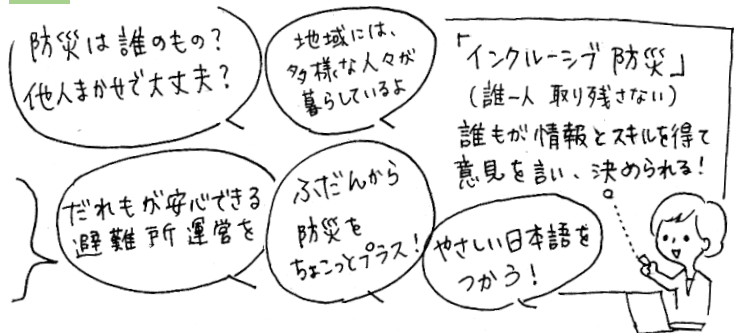 防災は誰のもの?
他人まかせで大丈夫?
地域には、
多様な人々が
暮らしているよ
「インクルーシブ防災」
(誰一人取り残さない)
誰もが情報とスキルを得て
意見を言い、決められる!
だれもが安心できる
避難所運営を
ふだんから
防災を
ちょこっとプラス!
やさしい日本語を
つかう!